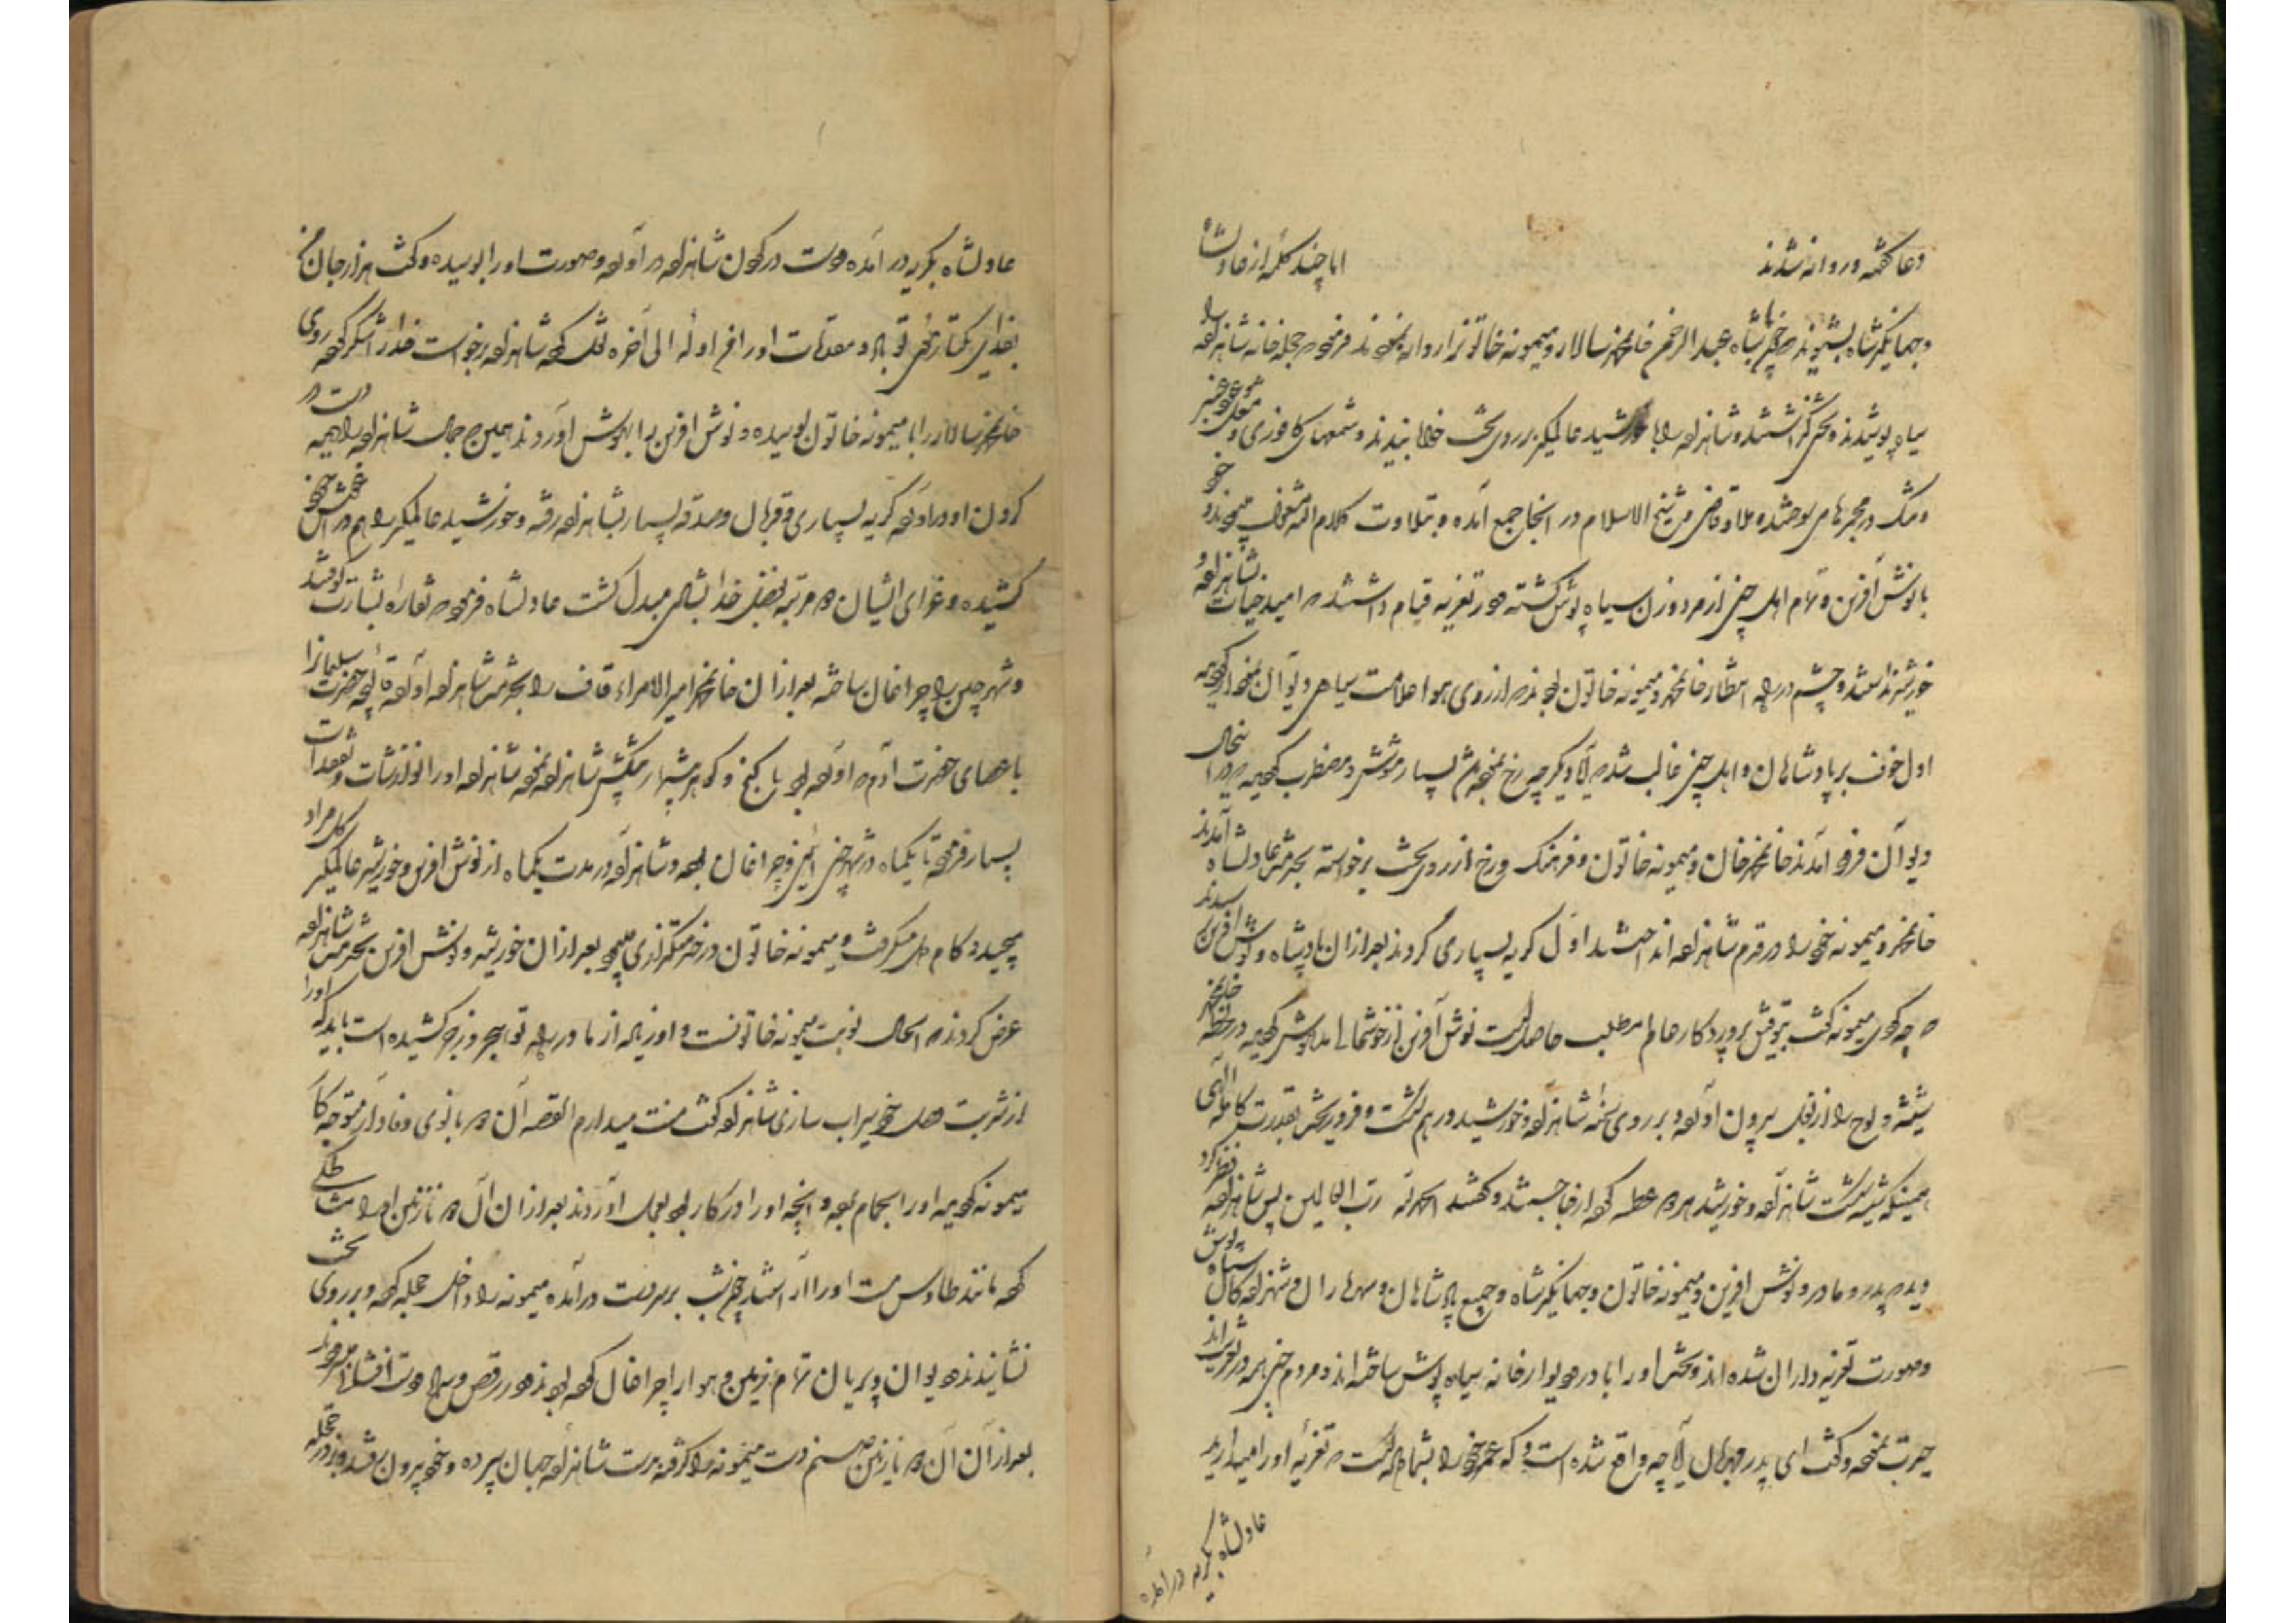 دعا گفته و روانه شدند اما چند کلمه از عادلشاه
و جهانگیرشاه بشنوید که چون پادشاه عبدالرحمن خان محمد سالار و میمونه خاتون را روانه نمودند فرمود حجله خانه شاهزاده را
سیاه پوشیدند و تختی گذاشتند و شاهزاده را با خورشید عالمگیر بر روی تخت خوابانیدند و شمعهای کافوری و عنبر
و مشک در مجمرها می سوختند و ملا و قاضی و شیخ الاسلام در آنجا جمع آمده و بتلاوت کلام الله مشغول میبودند و خود
با نوش آفرین و تمام اهل چین از مرد و زن سیاه پوش گشته در تعزیه قیام داشتند که امید حیات شاهزاده و
خورشید نداشتند و چشم در راه انتظار خان محمد و میمونه خاتون بودند که از روی هوا علامت سیاهی دیوان نمودار گردید
اول خوف بر پادشاهان و اهل چین غالب شد که آیا دیگر چه رخ نموده بسیار مشوش و مضطرب گردید در اینحال
دیوان فرود آمدند خان محمد خان و میمونه خاتون و فرهنگ دیوزاد از روی تخت برخواسته بخدمت عادلشاه آمدند
خان محمد و میمونه خود را در قدم شاهزاده انداختند اول گریه بسیاری کردند بعد از آن پادشاه و نوش آفرین رسیدند
که چه کردی میمونه گفت بتوفیق پروردگار عالم مطلب حاصل است نوش آفرین از خوشحالی مدهوش گردید در لحظه خان محمد
شیشه و لوح را از بغل بیرون آورده بر روی سینه شاهزاده و خورشید در هم شکست و فرو ریخت بقدرت کامله الهی
همینکه شیشه شکست شاهزاده و خورشید هر دو عطسه کرده از جا جستند و گفتند الحمد لله رب العالمین پس شاهزاده نظر کرد
دید که پدر و مادر و نوش آفرین و میمونه خاتون و جهانگیرشاه و جمیع پادشاهان و سپه سالاران و شهزاده گان سیاه پوش
و صورت تعزیه داران شده اند و تخت او را با در و دیوار خانه سیاه پوش ساخته اند و مردم چین همه در تعزیه اند
حیرت نموده و گفت ای پدر مهربان آیا چه واقع شده است و که عمر خود را بشما داده است که تعزیه او را میدارید
عادلشاه بگریه درآمده
عادلشاه بگریه درآمده دست در گردن شاهزاده در آورده و صورت او را بوسیده و گفت هزار جان من
فدای یکتار موی تو باد و مقدمات او را من اوله الی آخره نقل کرد شاهزاده برخواست خدا را شکر کرده روی
خان محمد سالار را با میمونه خاتون بوسیده و نوش آفرین را بهوش آوردند همین که جمال شاهزاده را دید دست در
گردن او در آورده گریه بسیاری و قربان و صدقه بسیار بشاهزاده رفته و خورشید عالمگیر را هم در آغوش خود
کشیده و عزای ایشان در مرتبه بفضل خدا بشادی مبدل گشت عادلشاه فرمود که نقاره بشارت کوفتند
و شهر چین را چراغان ساخته بعد از آن خان محمد امیر الامراء قاف را بخدمت شاهزاده آورده قالیچه حضرت سلیمان را
با عصای حضرت آدم که آورده بود با گنج و گوهر بسیار پیشکش شاهزاده نموده شاهزاده او را نوازشات و تفقدات
بسیار فرموده تا یکماه در شهر چین آئین و چراغان بوده و شاهزاده در مدت یکماه از نوش آفرین و خورشید عالمگیر گل مراد
میچید و کام دل میگرفت و میمونه خاتون در خدمتگزاری میبود بعد از آن خورشید و نوش آفرین بخدمت شاهزاده
عرض کردند که الحال نوبت میمونه خاتونست و او زیاده از ما در راه تو هجر و زجر کشیده است باید که او را
از شربت وصل خود سیراب سازی شاهزاده گفت منت میدارم القصه آن دو بانوی وفادار متوجه کار
میمونه گردیده او را بحمام برده و آنچه او را در کار بود بعمل آوردند بعد از آن آن دو نازنین او را مشاطگی
کرده مانند طاوس مست او را آراستند چون شب بر سر دست درآمد میمونه را داخل حجله کرده و بر روی تخت
نشانیدند دیوان و پریان تمام زمین و هوا را چراغان کرده بودند در رقص و سماع و دست افشانی
بعد از آن آن دو نازنین صنم دست میمونه را گرفته بدست شاهزاده جهان سپرده و خود بیرون رفتند و در حجله